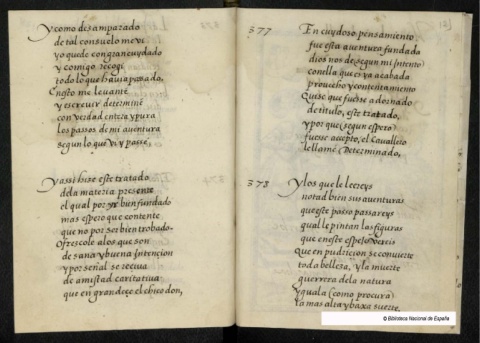 y como desamparado
de tal consuelo me vi
yo quede con gran cuydado
y comigo recogi
todo lo que havia pasado,
En esto me levanté
y escrevir determiné
con verdad entera y pura
los passos de mi aventura
segun lo que vi y passe,
y assi hize este tratado
de la materia presente
el qual por yr bien fundado
mas espero que contente
que no por ser bien trobado.
Ofrescolo a los que son
de sana y buena intencion
y por señal se reciva
de amistad caritativa
que en grandece el chico don,
377
En cuydoso pensamiento
fue esta aventura fundada
dios nos de segun mi intento
con ella que es ya acabada
provecho y contentamiento
Quise que fuesse adornado
de titulo, este tratado,
y por que (segun espero)
fuesse accepto, el Cavallero
le llamé Determinado,
378
y los que le leereys
notad bien sus aventuras
que este paso passareys
qual le pintan las figuras
que en este espejo vereis
Que en pudricion se convierte
toda belleza, y la muerte
guerrera de la natura
yguala (como procura)
la mas alta y baxa suerte.
© Biblioteca Nacional de España